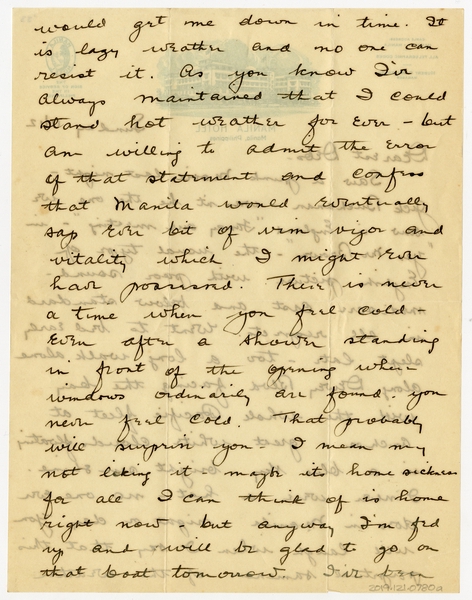 would get me down in time. It
is lazy weather and no one can
resist it. As you know I've
always maintained that I could
stand hot weather for ever - but
am willing to admit the error
of that statement and confess
that Manila would eventually
sap ever bit of vim vigor and
vitality which I might ever
have possessed. There is never
a time when you feel cold -
even after a shower standing
in front of the opening where
windows ordinarily are found you
never feel cold. That probably
will surprise you - I mean my
not liking it - maybe it home sickness
for all I can think of is home
right now - but anyway I'm fed
up and will be glad to go on
that boat tomorrow. I've been
2019.121.0980a